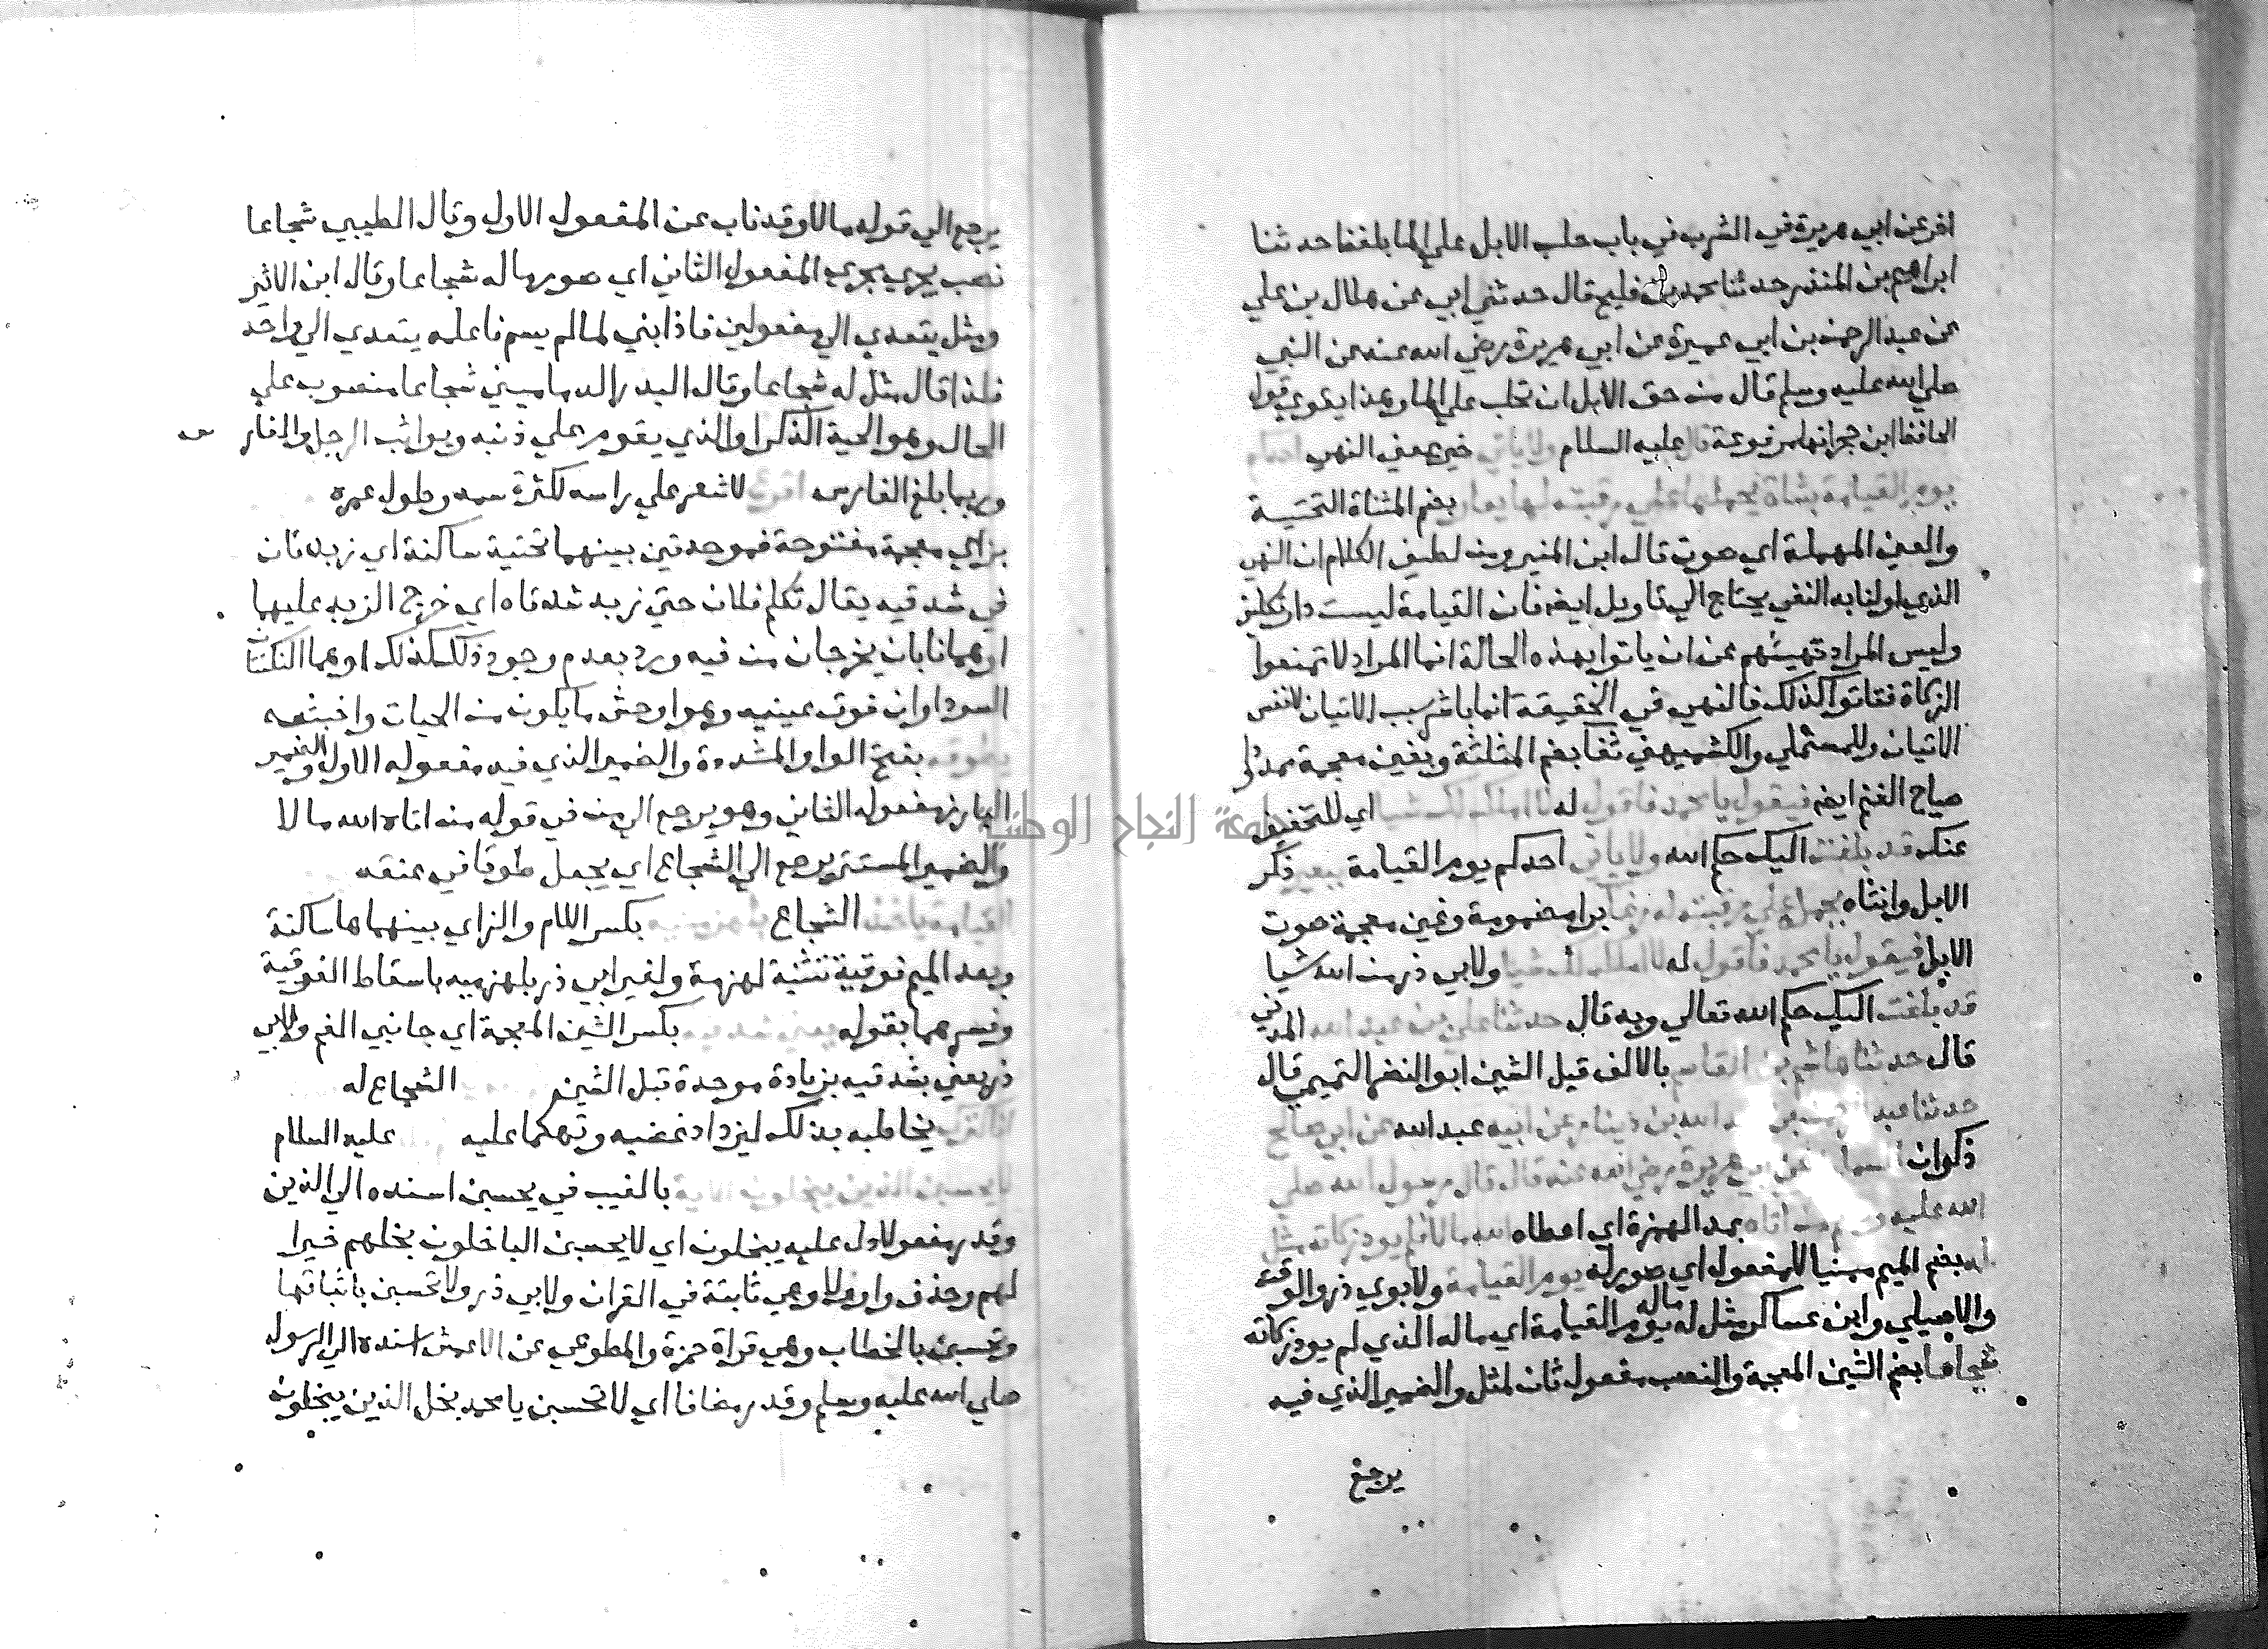 اخر عن ابي هريرة في الشرب في باب حلب الابل علي الما بلفظ حدثنا
ابراهيم بن المنذر حدثنا محمد بن فليح قال حدثني ابي عن هلال بن علي
عن عبد الرحمن بن ابي عميرة عن ابي هريرة رضي الله عنه عن النبي
صلي الله عليه وسلم قال من حق الابل ان تحلب علي الما وهذا يقوي قول
الحافظ ابن حجر انها مرفوعة قال عليه السلام ولا ياتي خبر بمعني النهي احدكم
يوم القيامة بشاة يحملها علي رقبته لها يعار بضم المثناة التحتية
والعين المهملة اي صوت قال ابن المنير ومن لطيف الكلام ان النهي
الذي اولنا به النفي يحتاج الي تاويل ايضا فان القيامة ليست دار تكليف
وليس المراد نهيهم عن ان ياتوا بهذه الحالة انما المراد لا تمنعوا
الزكاة فتاتوا كذلك فالنهي في الحقيقة انما باشر سبب الاتيان لا نفس
الاتيان وللمستملي والكشميهني ثغا بضم المثلثة وبغين معجمة ممدودا
صياح الغنم ايضا فيقول يا محمد فاقول له لا املك لك شيا اي للتخفيف
عنك قد بلغت اليك حكم الله ولا ياتي احدكم يوم القيامة ببعير ذكر
الابل وانثاه يحمله علي رقبته له رغا برا مضمومة وغين معجمة صوت
الابل فيقول يا محمد فاقول له لا املك لك شيا ولابي ذر من الله شيا
قد بلغت اليك حكم الله تعالي وبه قال حدثنا علي بن عبد الله المديني
قال حدثنا هاشم بن القاسم بالالف قبل الشين ابو النضر التميمي قال
حدثنا عبد الرحمن بن عبد الله بن دينار عن ابيه عبد الله عن ابي صالح
ذكوان السمان عن ابي هريرة رضي الله عنه قال قال رسول الله صلي
الله عليه وسلم من اتاه بمد الهمزة اي اعطاه الله مالا فلم يود زكاته مثل
له بضم الميم مبنيا للمفعول اي صور له يوم القيامة ولابوي ذر والوقت
والاصيلي وابن عساكر مثل له ماله يوم القيامة اي ماله الذي لم يود زكاته
شجاعا بضم الشين المعجمة والنصب مفعول ثان لمثل والضمير الذي فيه
يرجع
يرجع الي قوله مالا وقد ناب عن المفعول الاول وقال الطيبي شجاعا
نصب يجري مجري المفعول الثاني اي صور ماله شجاعا وقال ابن الاثير
ومثل يتعدي الي مفعولين فاذا بني لما لم يسم فاعله يتعدي الي واحد
فلذا قال مثل له شجاعا وقال البدر الدماميني شجاعا منصوب علي
الحال وهو الحية الذكر او الذي يقوم علي ذنبه ويواثب الرجل والفارس
وربما بلغ الفارس اقرع لا شعر علي راسه لكثرة سمه وطول عمره
بزاي معجمة مفتوحة فموحدتين بينهما تحتية ساكنة اي زبدتان
في شدقيه يقال تكلم فلان حتي زبد شدقاه اي خرج الزبد عليهما
او هما نابان يخرجان من فيه ورد بعدم وجود ذلك كذلك او هما النكتتا
السوداوان فوق عينيه وهو اوحش ما يكون من الحيات واخبثه
يطوقه بفتح الواو المشددة والضمير الذي فيه مفعوله الاول والضمير
البارز مفعوله الثاني وهو يرجع الي من في قوله من اتاه الله مالا
والضمير المستتر يرجع الي الشجاع اي يجعل طوقا في عنقه
القيامة ياخذ الشجاع بلهزمتيه بكسر اللام والزاي بينهما ها ساكنة
وبعد الميم فوقية تثنية لهزمة ولغير ابي ذر بلهزميه باسقاط الفوقية
وفسرهما بقوله يعني شدقيه بكسر الشين المعجمة اي جانبي الفم ولابي
ذر يعني بشدقيه بزيادة موحدة قبل الشين الشجاع له
انا كنزك يخاطبه بذلك ليزداد غصه وتهكما عليه عليه السلام
لا يحسبن الذين يبخلون الاية بالغيب في يحسبن اسنده الي الذين
وقدر مفعولا دل عليه يبخلون اي لا يحسبن الباخلون بخلهم خيرا
لهم وحذف واو ولا وهي ثابتة في القران ولابي ذر ولا تحسبن باثباتها
وتحسبن بالخطاب وهي قراة حمزة والمطوعي عن الاعمش اسنده الي الرسول
صلي الله عليه وسلم وقدر مضافا اي لا تحسبن يا محمد بخل الذين يبخلون
جامعة النجاح الوطنية